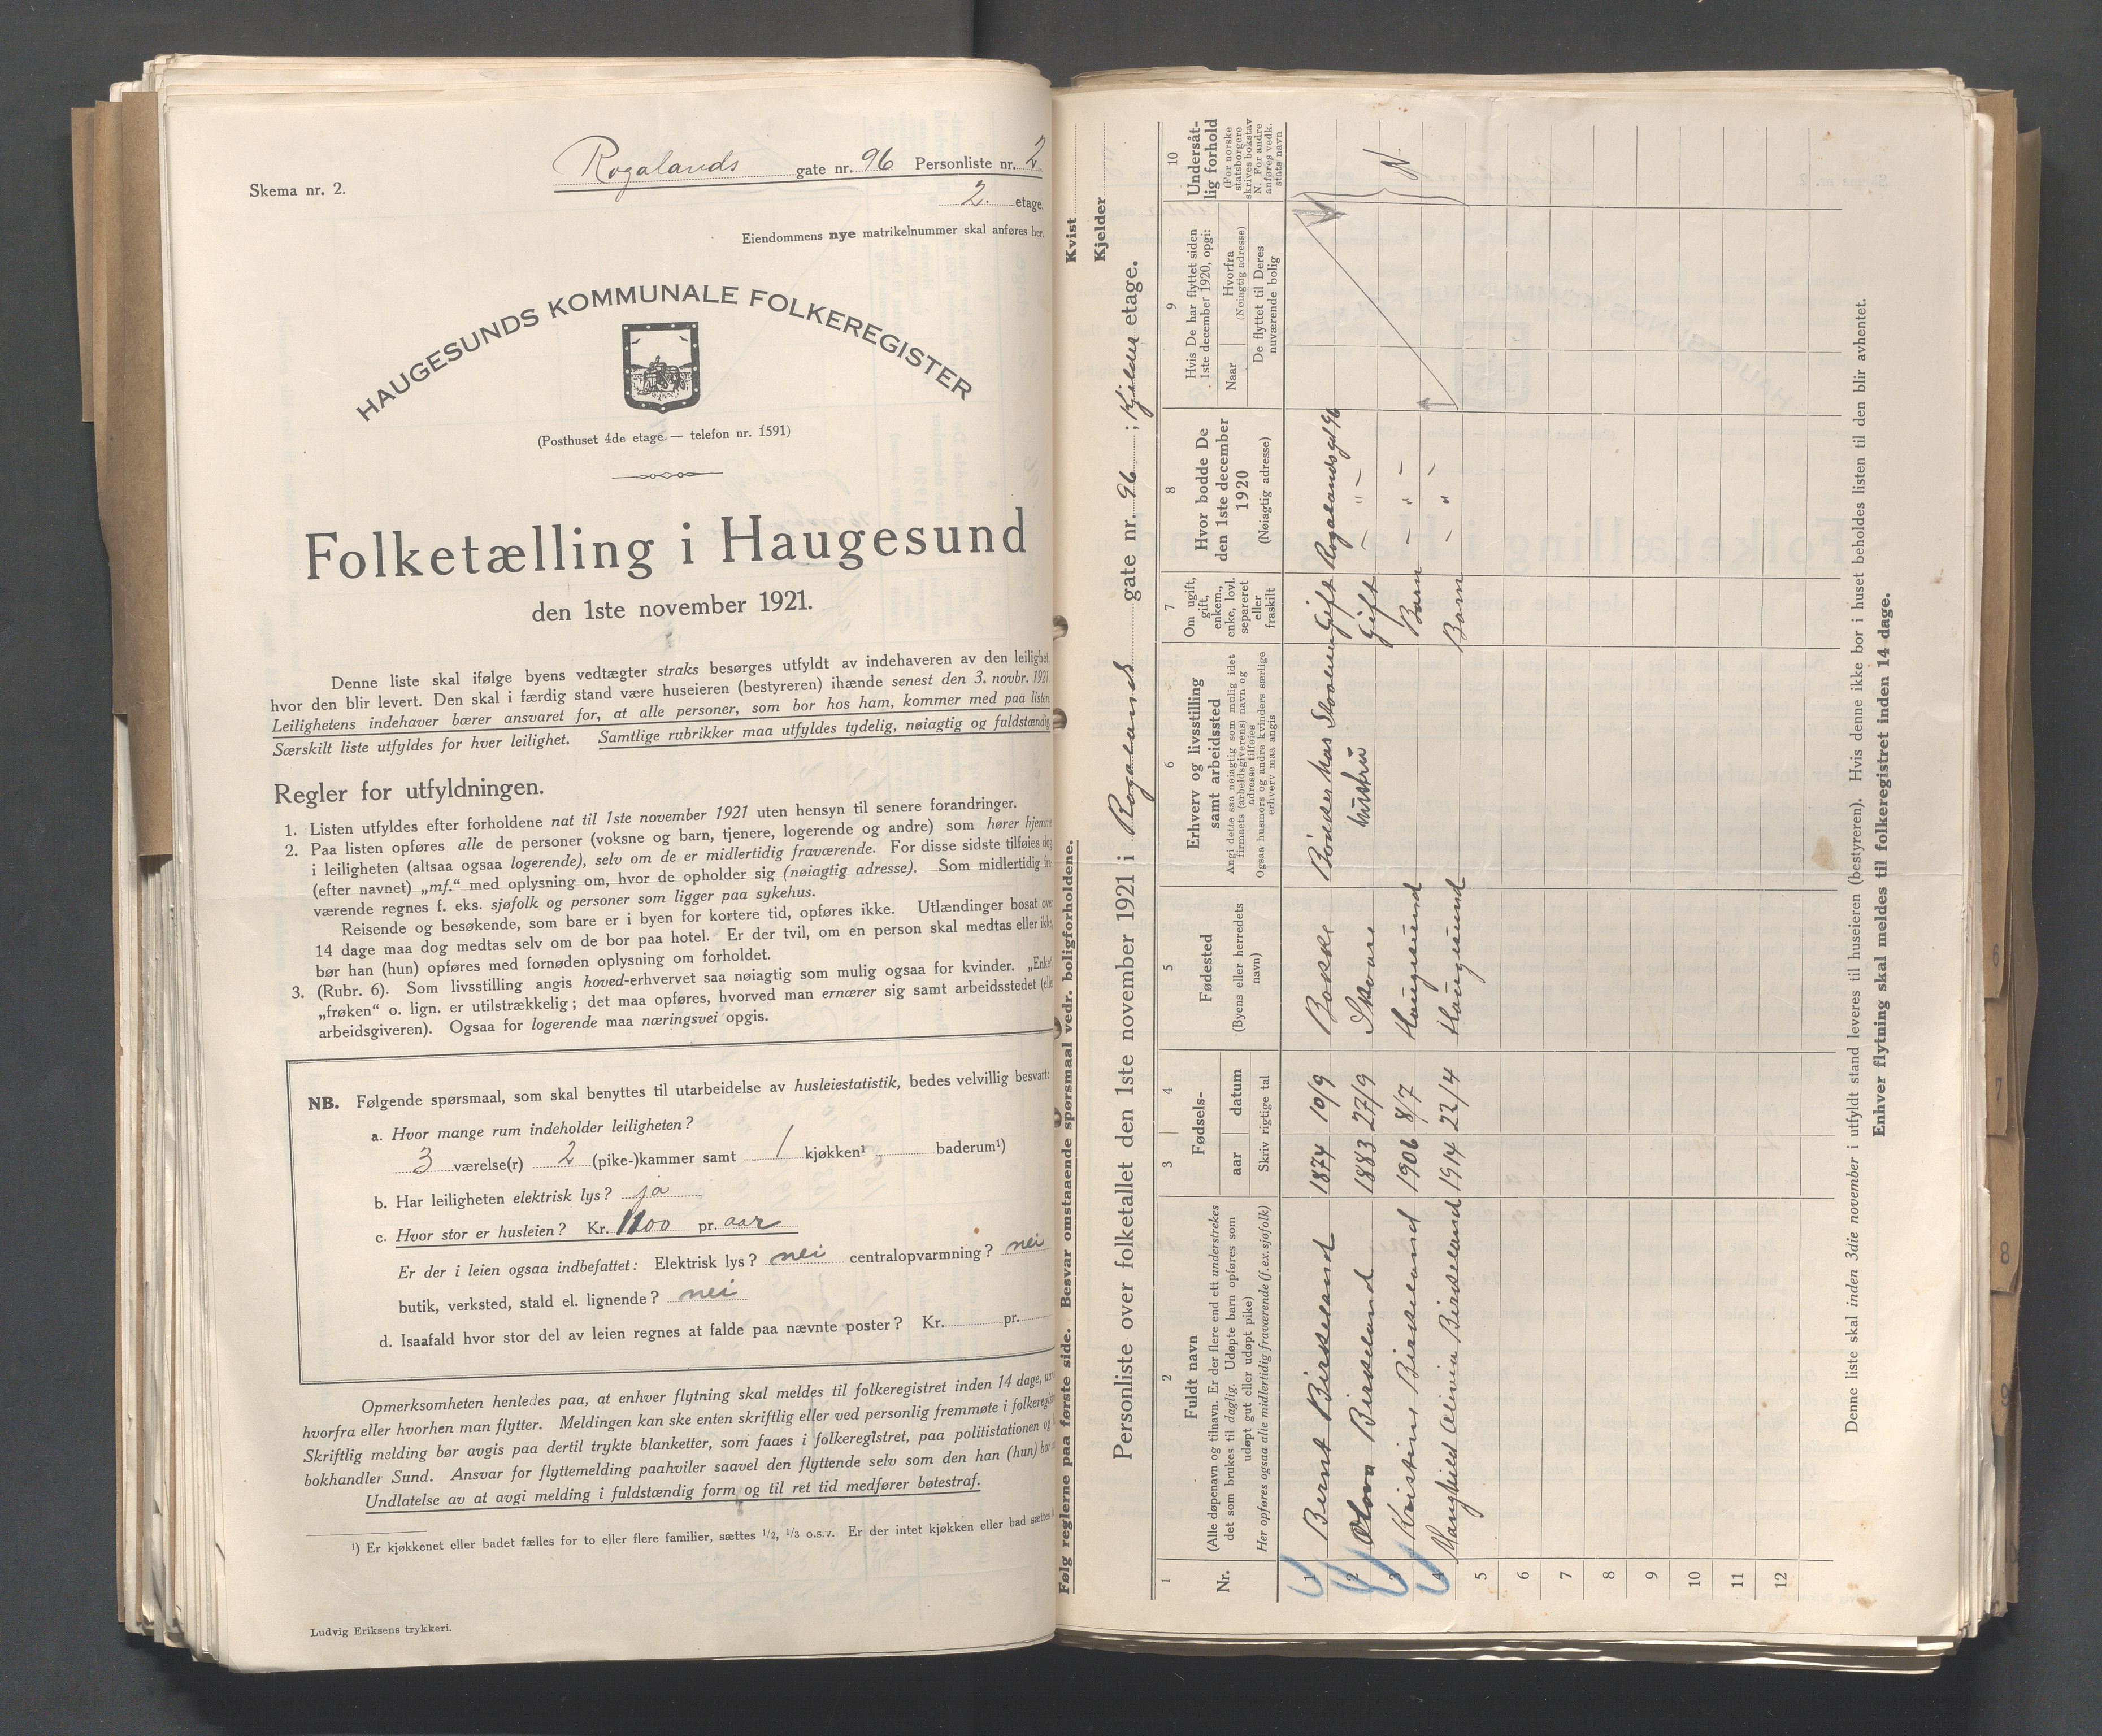 Skema nr. 2.
Rogalands gate nr. 96 Personliste nr. 2.
2. etage.
Eiendommens nye matrikelnummer skal anføres her.
HAUGESUNDS KOMMUNALE FOLKEREGISTER
(Posthuset 4de etage — telefon nr. 1591)
Folketælling i Haugesund
den 1ste november 1921.
Denne liste skal ifølge byens vedtægter straks besørges utfyldt av indehaveren av den leilighet,
hvor den blir levert. Den skal i færdig stand være huseieren (bestyreren) ihænde senest den 3. novbr. 1921.
Leilighetens indehaver bærer ansvaret for, at alle personer, som bor hos ham, kommer med paa listen.
Særskilt liste utfyldes for hver leilighet. Samtlige rubrikker maa utfyldes tydelig, nøiagtig og fuldstændig
Regler for utfyldningen.
1. Listen utfyldes efter forholdene nat til 1ste november 1921 uten hensyn til senere forandringer.
2. Paa listen opføres alle de personer (voksne og barn, tjenere, logerende og andre) som hører hjemme
i leiligheten (altsaa ogsaa logerende), selv om de er midlertidig fraværende. For disse sidste tilføies dog
(efter navnet) „mf.“ med oplysning om, hvor de opholder sig (nøiagtig adresse). Som midlertidig fra-
værende regnes f. eks. sjøfolk og personer som ligger paa sykehus.
Reisende og besøkende, som bare er i byen for kortere tid, opføres ikke. Utlændinger bosat over
14 dage maa dog medtas selv om de bor paa hotel. Er der tvil, om en person skal medtas eller ikke,
bør han (hun) opføres med fornøden oplysning om forholdet.
3. (Rubr. 6). Som livsstilling angis hoved-erhvervet saa nøiagtig som mulig ogsaa for kvinder. „Enke“
„frøken“ o. lign. er utilstrækkelig; det maa opføres, hvorved man ernærer sig samt arbeidsstedet (eller
arbeidsgiveren). Ogsaa for logerende maa næringsvei opgis.
NB. Følgende spørsmaal, som skal benyttes til utarbeidelse av husleiestatistik, bedes velvillig besvart:
a. Hvor mange rum indeholder leiligheten?
3 værelse(r) 2 (pike-)kammer samt 1 kjøkken¹ baderum¹)
b. Har leiligheten elektrisk lys? ja
c. Hvor stor er husleien? Kr. 1100 pr. aar
Er der i leien ogsaa indbefattet: Elektrisk lys? nei centralopvarmning? nei
butik, verksted, stald el. lignende? nei
d. Isaafald hvor stor del av leien regnes at falde paa nævnte poster? Kr. pr.
Opmerksomheten henledes paa, at enhver flytning skal meldes til folkeregistret inden 14 dage,
hvorfra eller hvorhen man flytter. Meldingen kan ske enten skriftlig eller ved personlig fremmøte i folkeregistret
Skriftlig melding bør avgis paa dertil trykte blanketter, som faaes i folkeregistret, paa politistationen og
bokhandler Sund. Ansvar for flyttemelding paahviler saavel den flyttende selv som den han (hun) bor
Undlatelse av at avgi melding i fuldstændig form og til ret tid medfører bøtestraf.
¹) Er kjøkkenet eller badet fælles for to eller flere familier, sættes 1/2, 1/3 o.s.v. Er der intet kjøkken eller bad sættes
Ludvig Eriksens trykkeri.
Følg reglerne paa første side. Besvar omstaaende spørsmaal vedr. boligforholdene.
Kvist
Kjelder
Personliste over folketallet den 1ste november 1921 i Rogalands gate nr. 96 ; Kjelder etage.
1 2 3 4 5 6 7 8 9 10
Nr.
Fuldt navn
(Alle døpenavn og tilnavn. Er der flere end ett understrekes
det som brukes til daglig. Udøpte barn opføres som
udøpt gut eller udøpt pike)
Her opføres ogsaa alle midlertidig fraværende (f.ex.sjøfolk)
Fødsels-
aar datum
Skriv rigtige tal
Fødested
(Byens eller herredets
navn)
Erhverv og livsstilling
samt arbeidssted
Angi dette saa nøiagtig som mulig idet
firmaets (arbeidsgiverens) navn og
adresse tilføies
Ogsaa husmors og andre kvinders særlige
erhverv maa angis
Om ugift,
gift,
enkem.,
enke, lovl.
separeret
eller
fraskilt
Hvor bodde De
den 1ste december
1920
(Nøiagtig adresse)
Hvis De har flyttet siden
1ste december 1920, opgi:
Naar
Hvorfra
(Nøiagtig adresse)
De flyttet til Deres
nuværende bolig
Undersåt-
lig forhold
(For norske
statsborgere
skrives bokstav
N. For andre
anføres vedk.
stats navn
1 Bernt Birkeland 1874 10/9 Bokke Gift Rogalandsgt 96 N
2 Olva Birkeland 1883 27/9 Skaare hustru Gift — " —
3 Kristine Birkeland 1906 8/7 Haugesund Barn — " —
4 Birkeland 1914 22/4 Haugesund Barn — " —
5
6
7
8
9
10
11
12
Denne liste skal inden 3die november i utfyldt stand leveres til huseieren (bestyreren). Hvis denne ikke bor i huset beholdes listen til den blir avhentet.
Enhver flytning skal meldes til folkeregistret inden 14 dage.
6
7
8
9